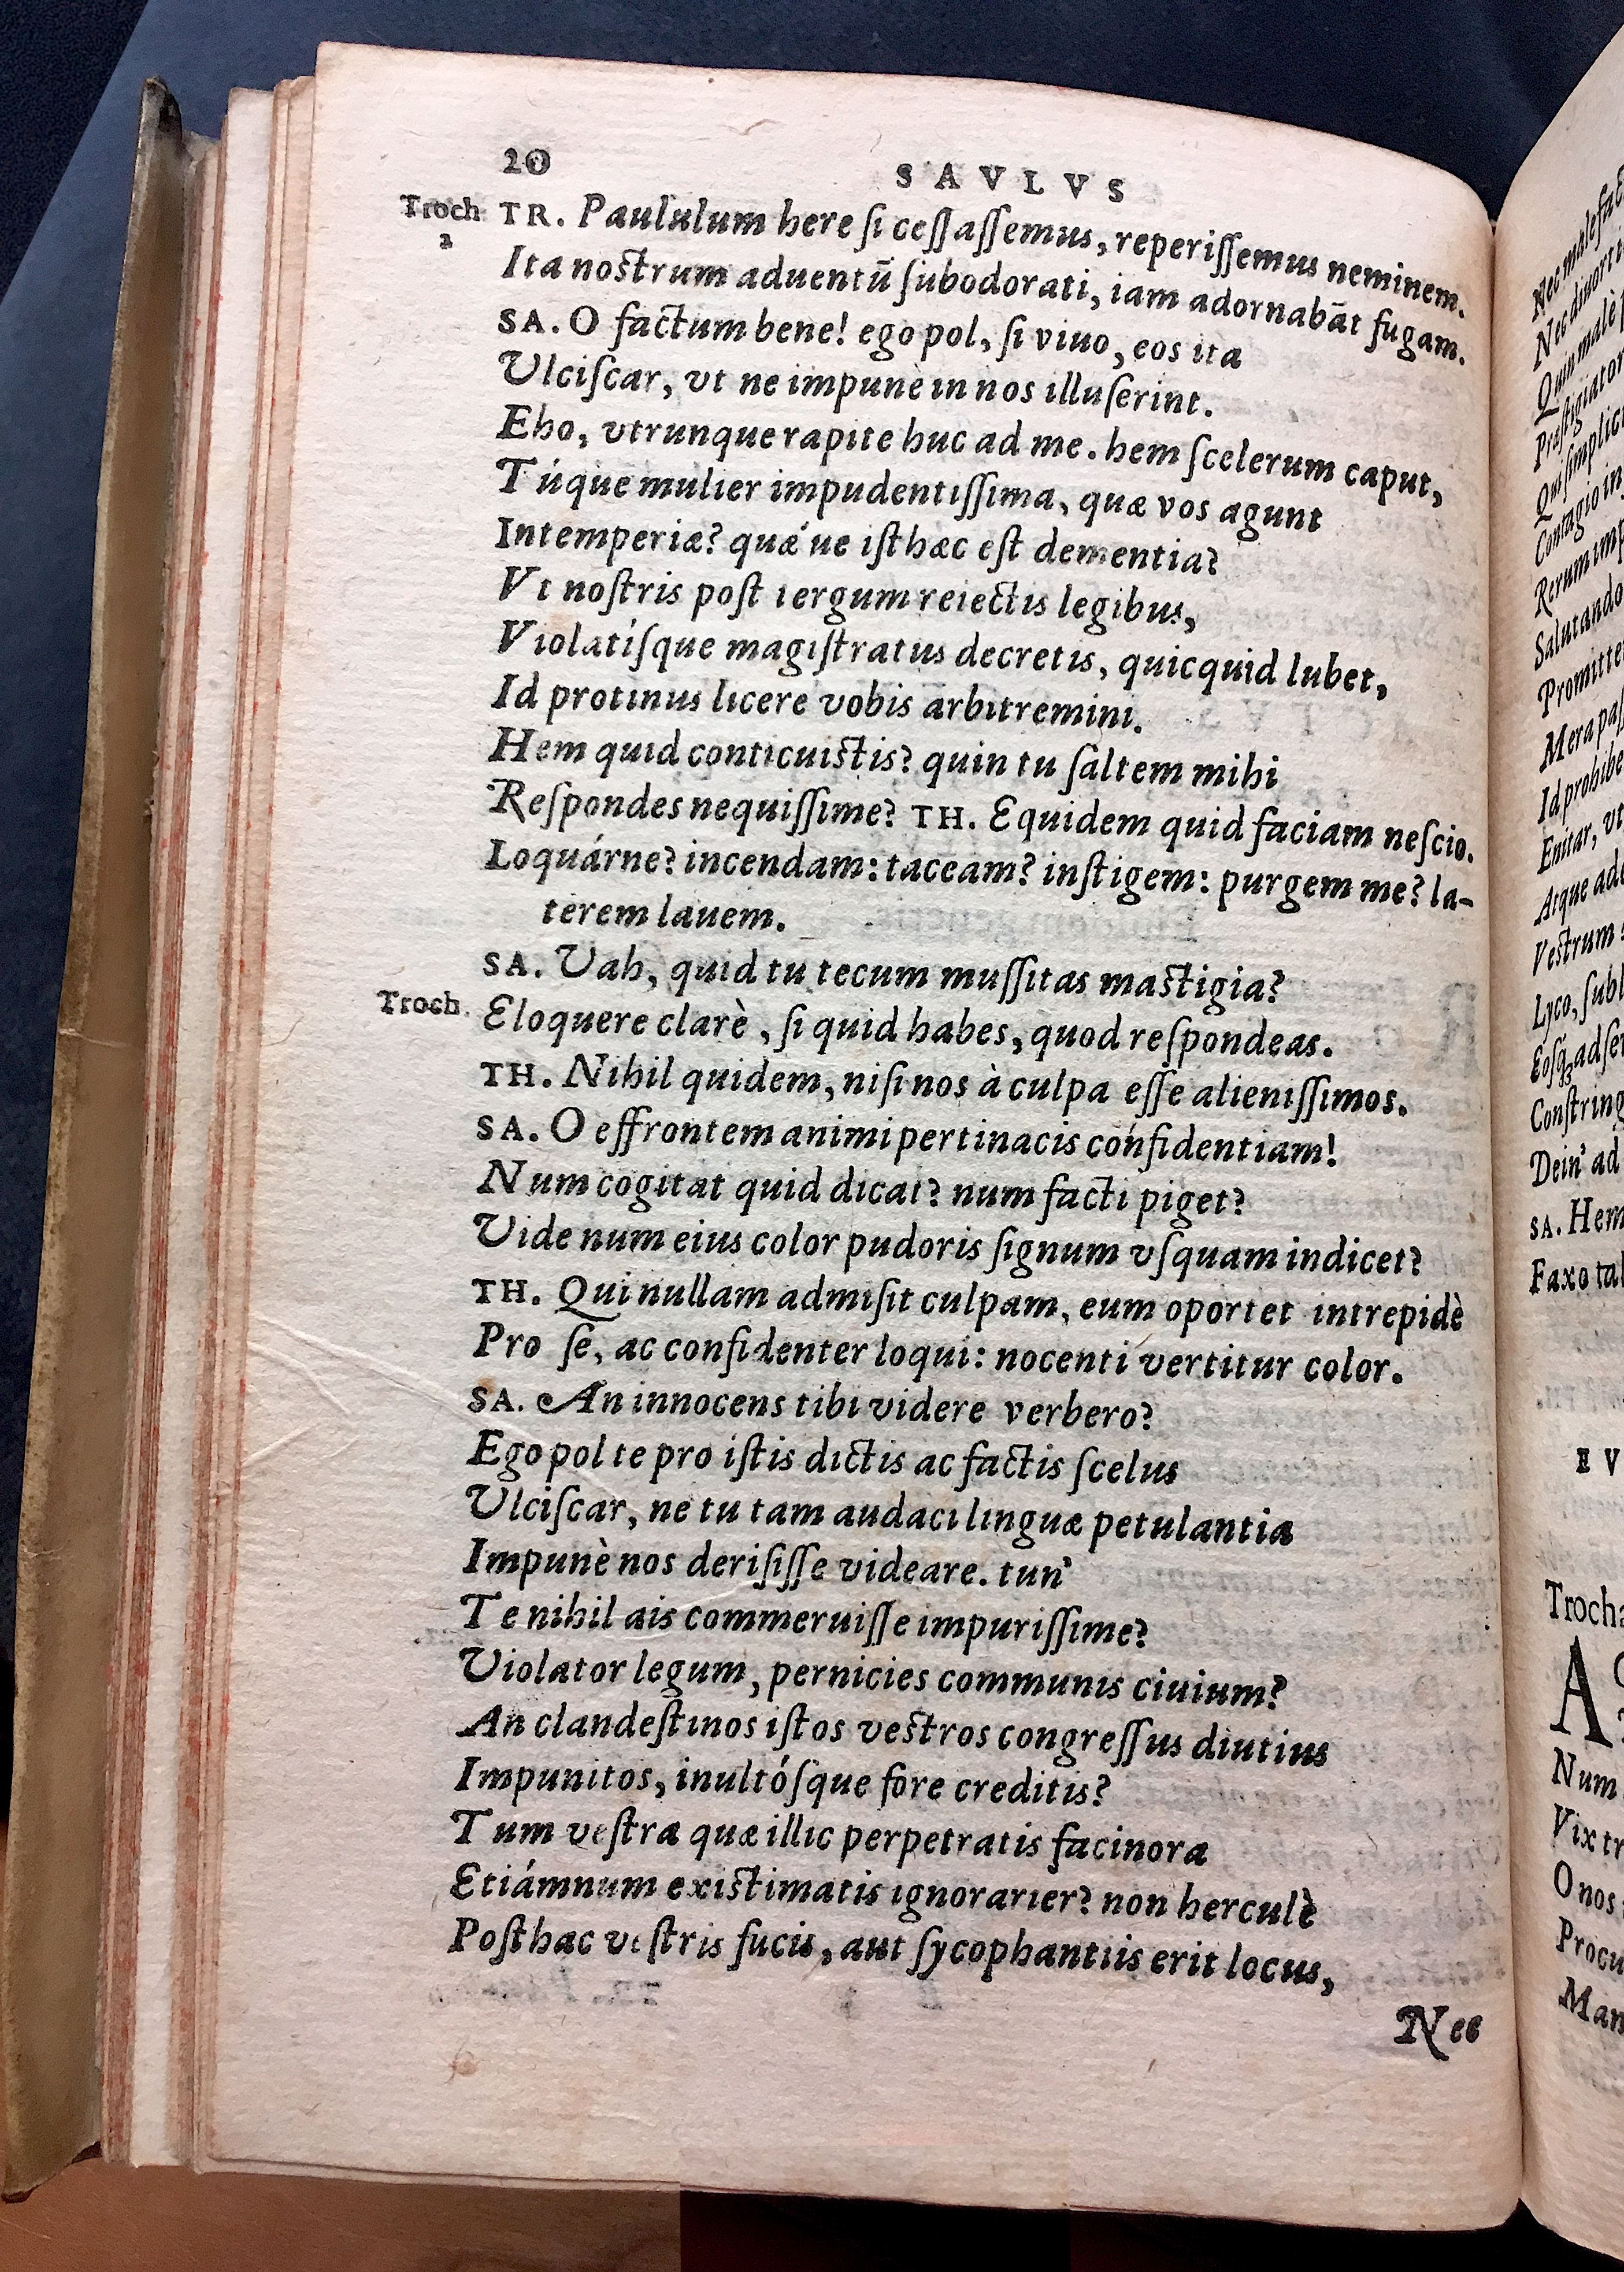 20
SAVLVS
Troch
2
TR. Paululum here ſi ceſſaſſemus, reperiſſemus neminem.
Ita noſtrum aduentū ſubodorati, iam adornabāt fugam.
SA. O factum bene! ego pol, ſi viuo, eos ita
Ulciſcar, vt ne impunè in nos illuſerint.
Eho, vtrunque rapite huc ad me. hem ſcelerum caput,
Túque mulier impudentiſſima, quæ vos agunt
Intemperiæ? quǽ ue iſthæc eſt dementia?
Vt noſtris poſt tergum reiectis legibus,
Violatíſque magiſtratus decretis, quicquid lubet,
Id protinus licere vobis arbitremini.
Hem quid conticuiſtis? quin tu ſaltem mihi
Reſpondes nequiſſime? TH. Equidem quid faciam neſcio.
Loquárne? incendam: taceam? inſtigem: purgem me? la-
terem lauem.
SA. Uah, quid tu tecum muſſitas maſtigia?
Troch.
Eloquere clarè, ſi quid habes, quod reſpondeas.
TH. Nihil quidem, niſi nos à culpa eſſe alieniſſimos.
SA. O effrontem animi pertinacis cónfidentiam!
Num cogitat quid dicat? num facti piget?
Vide num eius color pudoris ſignum vſquam indicet?
TH. Qui nullam admiſit culpam, eum oportet intrepidè
Pro ſe, ac confidenter loqui: nocenti vertitur color.
SA. An innocens tibi videre verbero?
Ego pol te pro iſtis dictis ac factis ſcelus
Ulciſcar, ne tu tam audaci linguæ petulantia
Impunè nos deriſiſſe videare. tun'
Te nihil ais commeruiſſe impuriſſime?
Violator legum, pernicies communis ciuium?
An clandeſtinos iſtos veſtros congreſſus diutius
Impunitos, inultóſque fore creditis?
Tum veſtra quæ illic perpetratis facinora
Etiámnum exiſtimatis ignorarier? non herculè
Poſthac veſtris fucis, aut ſycophantiis erit locus,
Nec
SA. Hem
Num
Vix
O nos